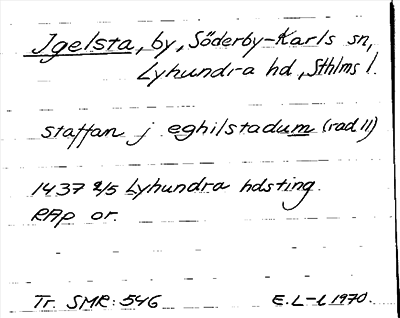 Igelsta, by, Söderby-Karls sn,
Lyhundra hd, Sthlms l.
staffan j eghilstadum (rad 11)
1437 2/5 Lyhundra hdsting.
RAp or.
Tr. SMR: 546 E. L-l 1970.